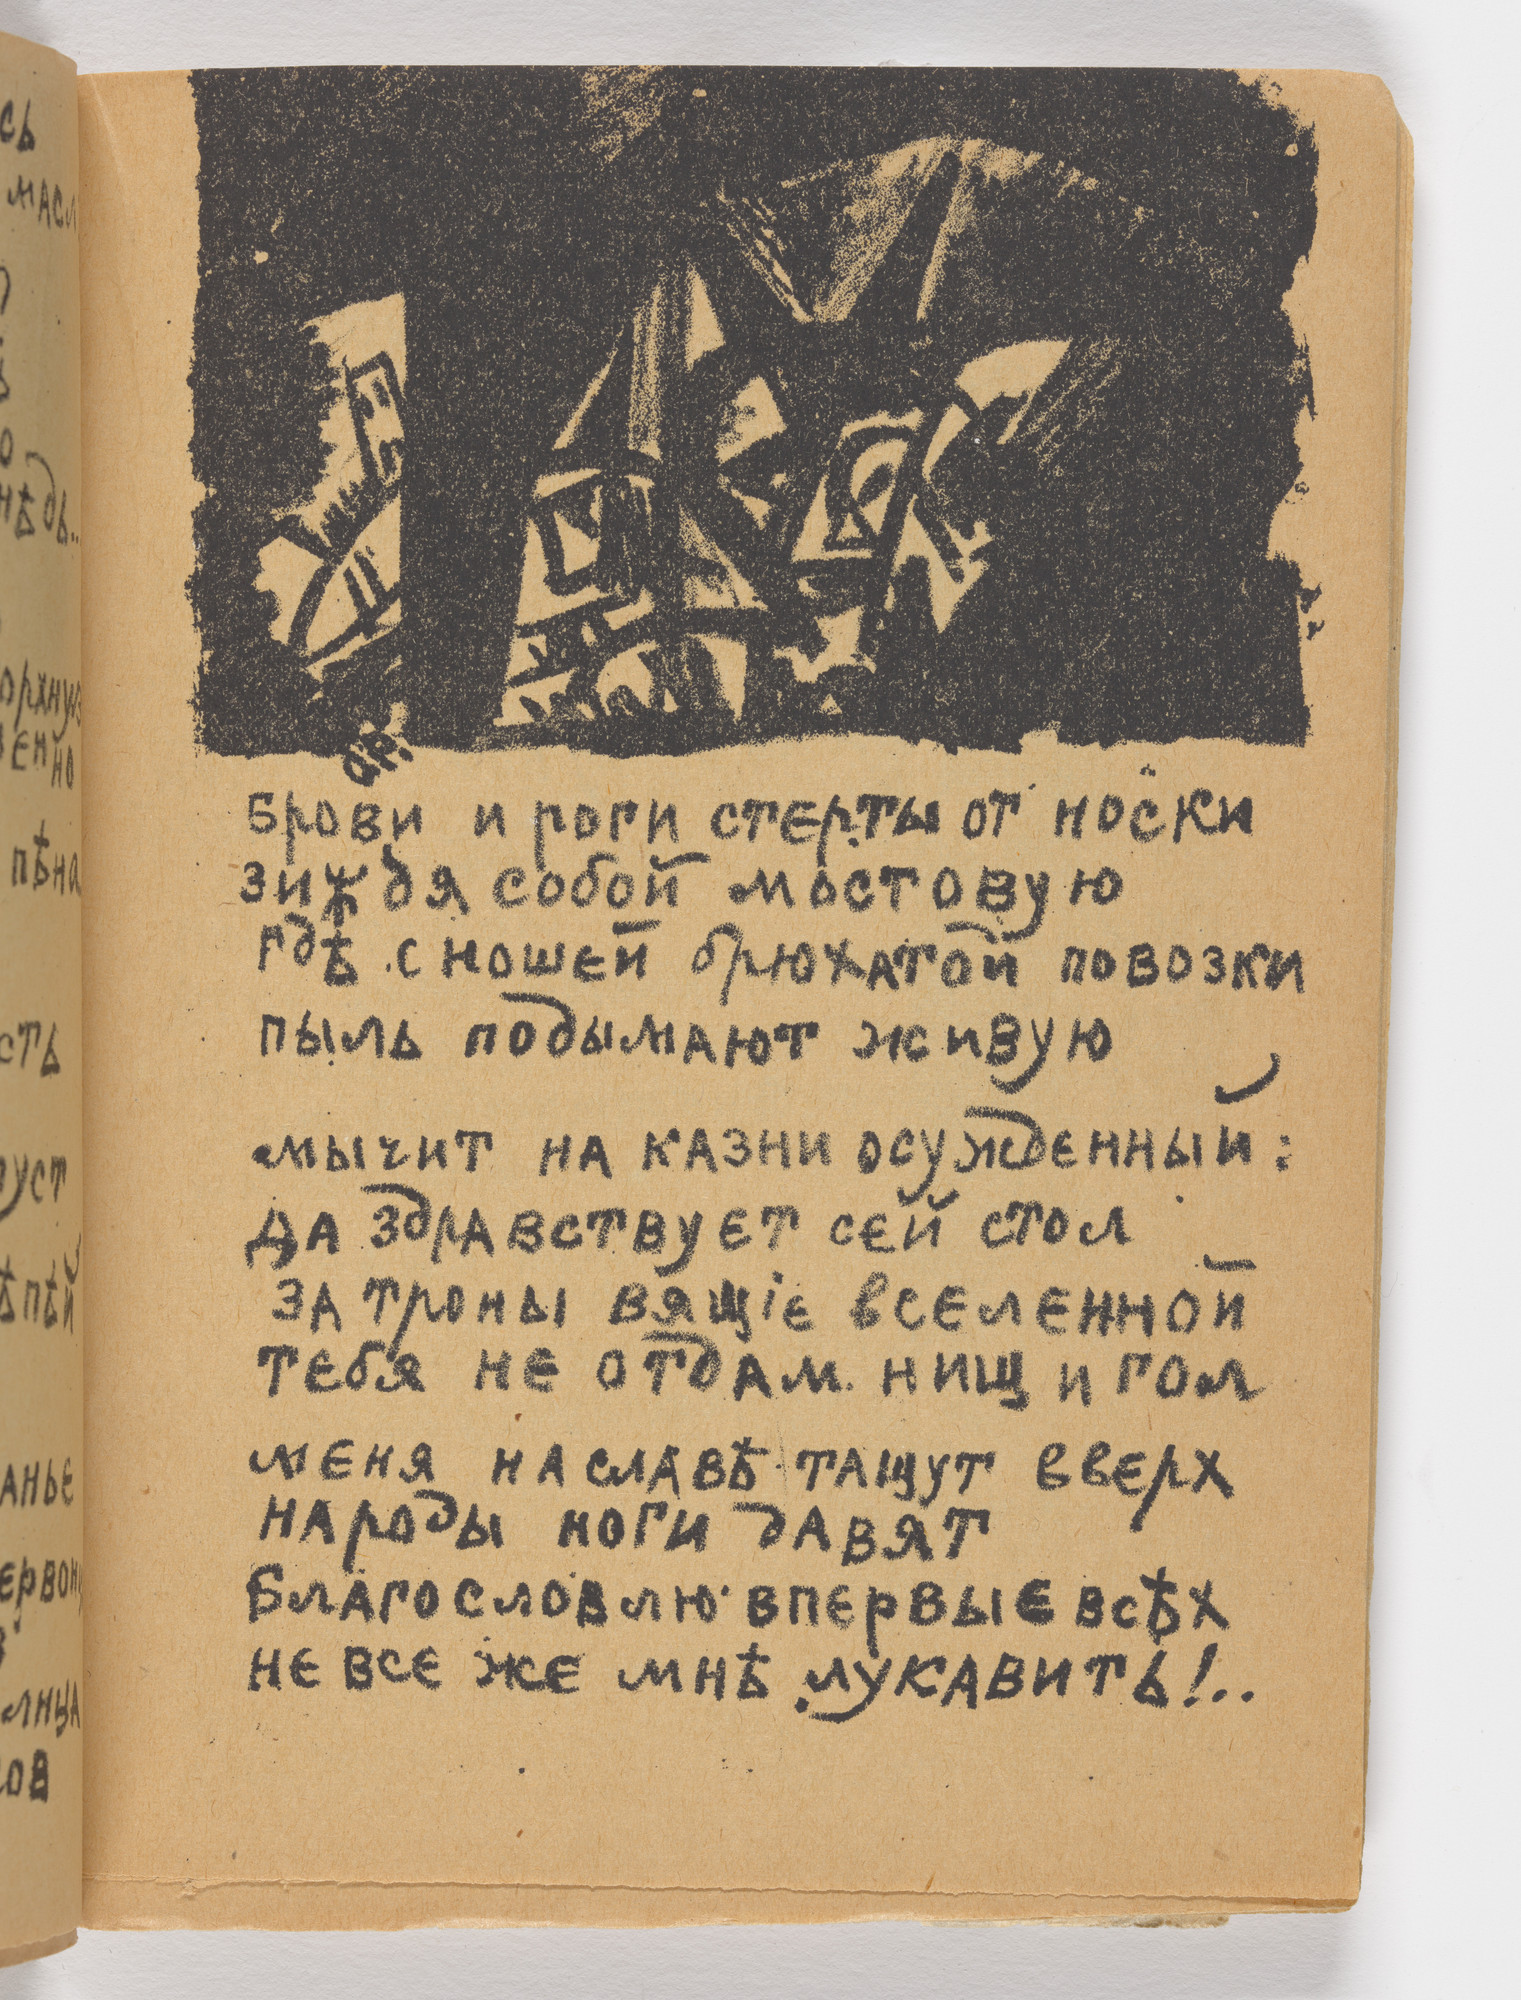 сь
масл
нѣдь..
орхнув
венно
пѣна
сть
пуст
ѣпѣй
анье
ервон
лнца
ов
брови и роги стерты от носки
зиждя собой мостовую
гдѣ с ношей брюхатой повозки
пыль подымают живую
мычит на казни осужденный:
да здравствует сей стол
за троны вящіе вселенной
тебя не отдам нищ и гол
меня на славѣ тащут вверх
народы ноги давят
благословлю впервые всѣх
не все же мнѣ лукавить!..